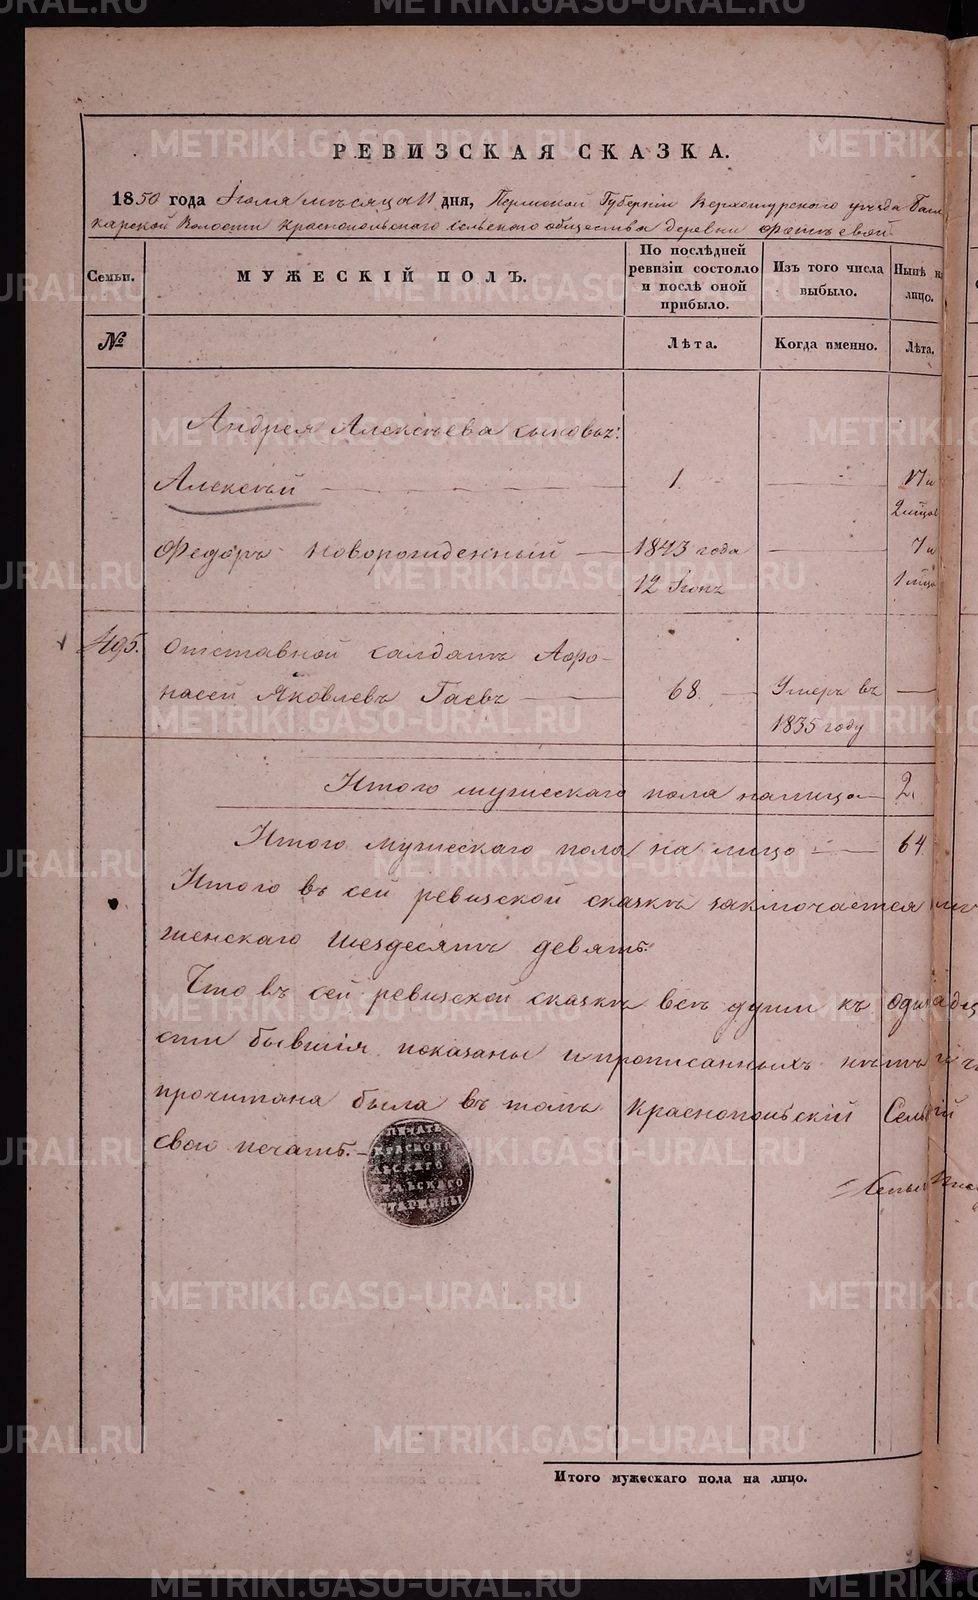 РЕВИЗСКАЯ СКАЗКА.
1850 года Іюля мѣсяца 11 дня, Пермской Губерніи Верхотурского уѣзда Баш-
карской Волости Краснопольскаго сельскаго общества деревни Фатѣевой
Семьи.
МУЖЕСКІЙ ПОЛЪ.
По послѣдней ревизіи состояло и послѣ оной прибыло.
Изъ того числа выбыло.
Нынѣ на лицо.
№
Лѣта.
Когда именно.
Лѣта.
Андрея Алексѣева сыновья:
Алексѣй 1. 17 и
2 мѣца
Федоръ новорожденный 1843 года 7 и
12 Іюня 1 мѣца
495. Отставной салдатъ Афо-
насей Яковлевъ Гаевъ 68 Умеръ въ
1835 году
Итого мужескаго пола налицо 2.
Итого мужескаго пола на лицо 64
Итого въ сей ревизской сказкѣ заключается
женскаго шездесятъ девять.
Что въ сей ревизской сказкѣ всѣ души къ
сти бывшія показаны и прописанныхъ нѣтъ и
прочитана была въ томъ Краснопольскій
свою печать.
ПЕЧАТЬ
КРАСНОПО
ЛЬСКАГО
СЕЛЬСКАГО
СТАРШИНЫ
Итого мужескаго пола на лицо.
METRIKI.GASO-URAL.RU